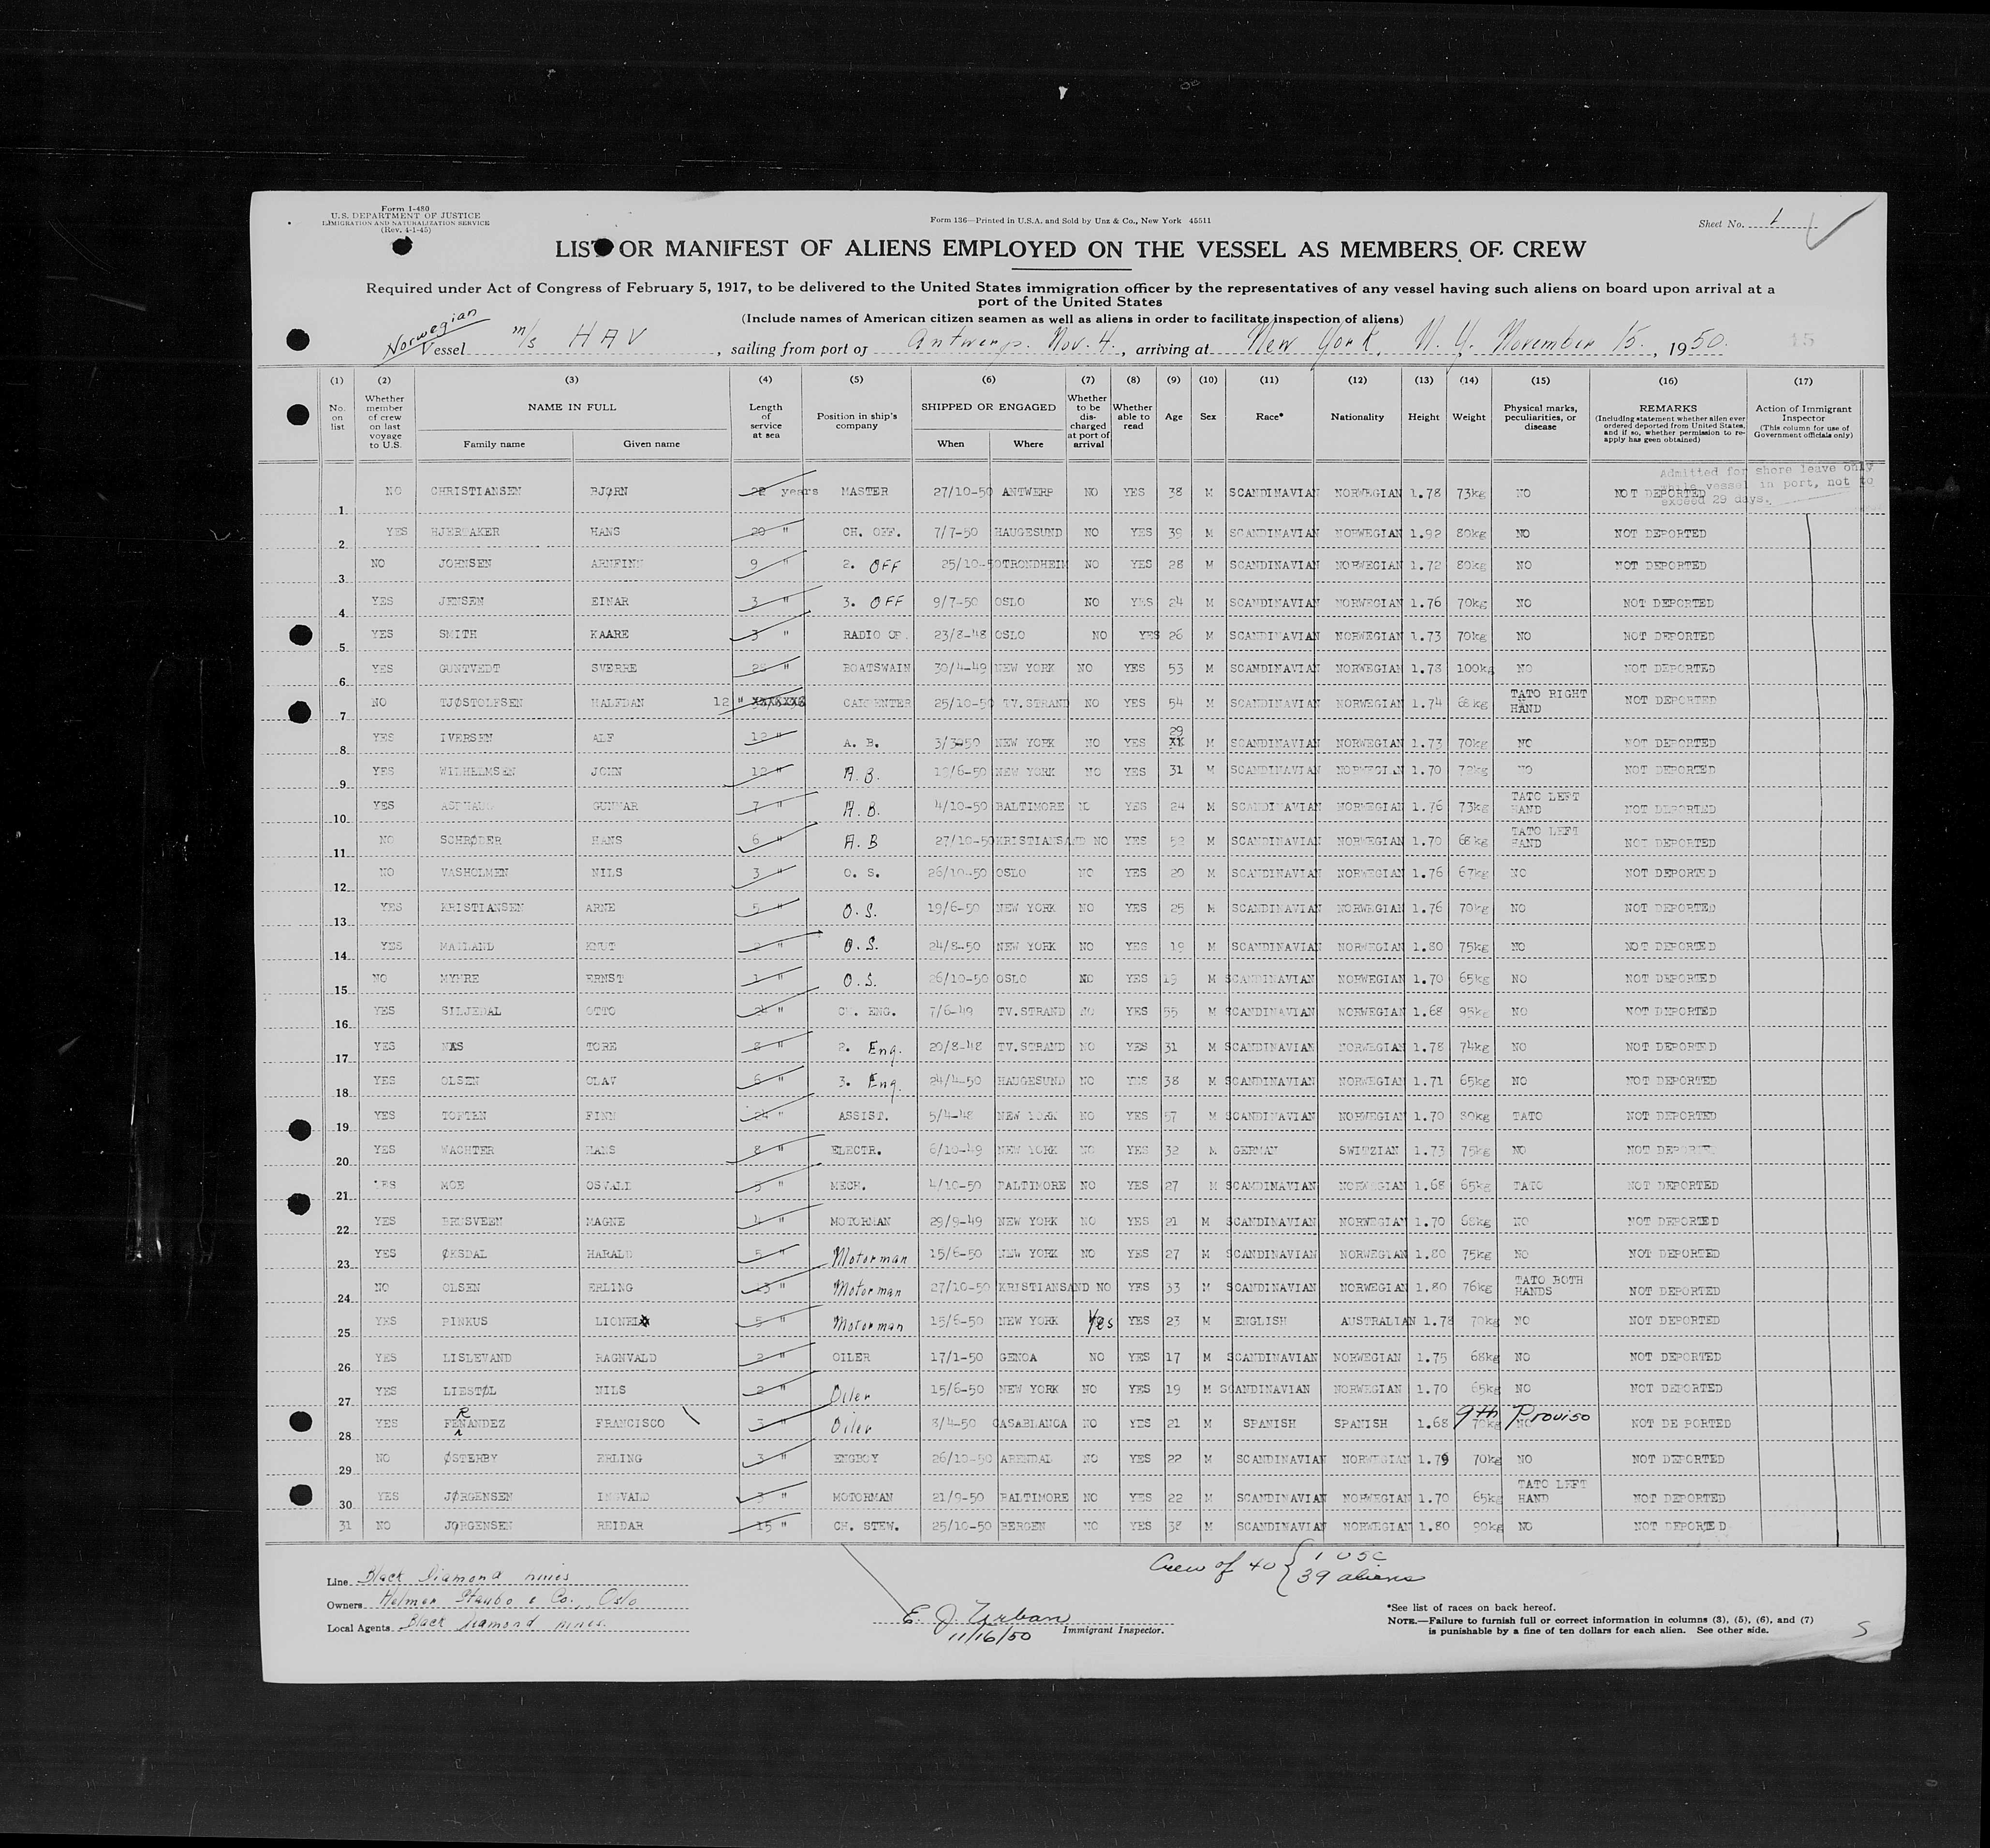 Form I-480
U.S. DEPARTMENT OF JUSTICE
IMMIGRATION AND NATURALIZATION SERVICE
(Rev. 4-1-45)
Form 136—Printed in U.S.A. and Sold by Unz & Co., New York 45511
Sheet No. 1
LIST OR MANIFEST OF ALIENS EMPLOYED ON THE VESSEL AS MEMBERS OF CREW
Required under Act of Congress of February 5, 1917, to be delivered to the United States immigration officer by the representatives of any vessel having such aliens on board upon arrival at a
port of the United States
(Include names of American citizen seamen as well as aliens in order to facilitate inspection of aliens)
Norwegian
Vessel m/s HAV, sailing from port of Antwerp. Nov. 4., arriving at New York, N.Y. November 15., 1950. 15
(1) (2) (3) (4) (5) (6) (7) (8) (9) (10) (11) (12) (13) (14) (15) (16) (17)
No. on list
Whether member of crew on last voyage to U.S.
NAME IN FULL
Family name Given name
Length of service at sea
Position in ship's company
SHIPPED OR ENGAGED
When Where
Whether to be discharged at port of arrival
Whether able to read
Age Sex Race* Nationality Height Weight
Physical marks, peculiarities, or disease
REMARKS
(Including statement whether alien ever ordered deported from United States, and if so, whether permission to re-apply has geen obtained)
Action of Immigrant Inspector
(This column for use of Government officials only)
Admitted for shore leave only
while vessel in port, not to
exceed 29 days.
1 NO CHRISTIANSEN BJØRN 22 years MASTER 27/10-50 ANTWERP NO YES 38 M SCANDINAVIAN NORWEGIAN 1.78 73kg NO NOT DEPORTED
2 YES HJERTAKER HANS 20 " CH. OFF. 7/7-50 HAUGESUND NO YES 39 M SCANDINAVIAN NORWEGIAN 1.92 80kg NO NOT DEPORTED
3 NO JOHNSEN ARNFINN 9 " 2. OFF 25/10-50 TRONDHEIM NO YES 28 M SCANDINAVIAN NORWEGIAN 1.72 80kg NO NOT DEPORTED
4 YES JENSEN EINAR 3 " 3. OFF 9/7-50 OSLO NO YES 24 M SCANDINAVIAN NORWEGIAN 1.76 70kg NO NOT DEPORTED
5 YES SMITH KAARE 3 " RADIO OF. 23/8-48 OSLO NO YES 26 M SCANDINAVIAN NORWEGIAN 1.73 70kg NO NOT DEPORTED
6 YES GUNTVEDT SVERRE " BOATSWAIN 30/4-49 NEW YORK NO YES 53 M SCANDINAVIAN NORWEGIAN 1.78 100kg NO NOT DEPORTED
7 NO TJØSTOLFSEN HALFDAN 12 " CARPENTER 25/10-50 TV.STRAND NO YES 54 M SCANDINAVIAN NORWEGIAN 1.74 68kg TATO RIGHT HAND NOT DEPORTED
8 YES IVERSEN ALF 12 " A. B. 3/3-50 NEW YORK NO YES 29 M SCANDINAVIAN NORWEGIAN 1.73 70kg NO NOT DEPORTED
9 YES WILHELMSEN JOHN 12 " A.B. 19/6-50 NEW YORK NO YES 31 M SCANDINAVIAN NORWEGIAN 1.70 72kg NO NOT DEPORTED
10 YES GUNNAR 7 " A.B. 4/10-50 BALTIMORE YES 24 M SCANDINAVIAN NORWEGIAN 1.76 73kg TATO LEFT HAND NOT DEPORTED
11 NO SCHRØDER HANS 6 " A.B 27/10-50 KRISTIANSAND NO YES 52 M SCANDINAVIAN NORWEGIAN 1.70 68kg TATO LEFT HAND NOT DEPORTED
12 NO VASHOLMEN NILS 3 " O. S. 26/10-50 OSLO NO YES 20 M SCANDINAVIAN NORWEGIAN 1.76 67kg NO NOT DEPORTED
13 YES KRISTIANSEN ARNE 5 " O.S. 19/6-50 NEW YORK NO YES 25 M SCANDINAVIAN NORWEGIAN 1.76 70kg NO NOT DEPORTED
14 YES MAELAND KNUT 2 " O.S. 24/8-50 NEW YORK NO YES 19 M SCANDINAVIAN NORWEGIAN 1.80 75kg NO NOT DEPORTED
15 NO MYHRE ERNST 1 " O.S. 26/10-50 OSLO NO YES 19 M SCANDINAVIAN NORWEGIAN 1.70 65kg NO NOT DEPORTED
16 YES SILJEDAL OTTO 24 " CH. ENG. 7/6-49 TV.STRAND NO YES 55 M SCANDINAVIAN NORWEGIAN 1.68 95kg NO NOT DEPORTED
17 YES NÆS TORE 8 " 2. Eng. 20/8-48 TV.STRAND NO YES 31 M SCANDINAVIAN NORWEGIAN 1.78 74kg NO NOT DEPORTED
18 YES OLSEN OLAV 6 " 3. Eng. 24/4-50 HAUGESUND NO YES 38 M SCANDINAVIAN NORWEGIAN 1.71 65kg NO NOT DEPORTED
19 YES TOFTEN FINN 24 " ASSIST. 5/4-48 NEW YORK NO YES 57 M SCANDINAVIAN NORWEGIAN 1.70 80kg TATO NOT DEPORTED
20 YES WACHTER HANS 8 " ELECTR. 6/10-49 NEW YORK NO YES 32 M GERMAN SWITZIAN 1.73 75kg NO NOT DEPORTED
21 YES MOE OSVALD 3 " MECH. 4/10-50 BALTIMORE NO YES 27 M SCANDINAVIAN NORWEGIAN 1.68 65kg TATO NOT DEPORTED
22 YES BRUSVEEN MAGNE 4 " MOTORMAN 29/9-49 NEW YORK NO YES 21 M SCANDINAVIAN NORWEGIAN 1.70 68kg NO NOT DEPORTED
23 YES ØKSDAL HARALD 5 " Motorman 15/6-50 NEW YORK NO YES 27 M SCANDINAVIAN NORWEGIAN 1.80 75kg NO NOT DEPORTED
24 NO OLSEN ERLING 13 " Motorman 27/10-50 KRISTIANSAND NO YES 33 M SCANDINAVIAN NORWEGIAN 1.80 76kg TATO BOTH HANDS NOT DEPORTED
25 YES PINKUS LIONEL 5 " Motorman 15/6-50 NEW YORK Yes YES 23 M ENGLISH AUSTRALIAN 1.78 70kg NO NOT DEPORTED
26 YES LISLEVAND RAGNVALD 2 " OILER 17/1-50 GENOA NO YES 17 M SCANDINAVIAN NORWEGIAN 1.75 68kg NO NOT DEPORTED
27 YES LIESTØL NILS 2 " Oiler 15/6-50 NEW YORK NO YES 19 M SCANDINAVIAN NORWEGIAN 1.70 65kg NO NOT DEPORTED
28 YES FERNANDEZ FRANCISCO 3 " Oiler 8/4-50 CASABLANCA NO YES 21 M SPANISH SPANISH 1.68 70kg NO 9th Proviso NOT DE PORTED
29 NO ØSTERBY ERLING 3 " ENGBOY 26/10-50 ARENDAL NO YES 22 M SCANDINAVIAN NORWEGIAN 1.79 70kg NO NOT DEPORTED
30 YES JØRGENSEN INGVALD 3 " MOTORMAN 21/9-50 BALTIMORE NO YES 22 M SCANDINAVIAN NORWEGIAN 1.70 65kg TATO LEFT HAND NOT DEPORTED
31 NO JØRGENSEN REIDAR 15 " CH. STEW. 25/10-50 BERGEN NO YES 38 M SCANDINAVIAN NORWEGIAN 1.80 90kg NO NOT DEPORTED
Crew of 40 { 1 USC
39 aliens
Line Black Diamond Lines
Owners Helmer Staubo & Co., Oslo
Local Agents Black Diamond Lines.
E. J. Urban
11/16/50 Immigrant Inspector.
*See list of races on back hereof.
NOTE.—Failure to furnish full or correct information in columns (3), (5), (6), and (7)
is punishable by a fine of ten dollars for each alien. See other side.